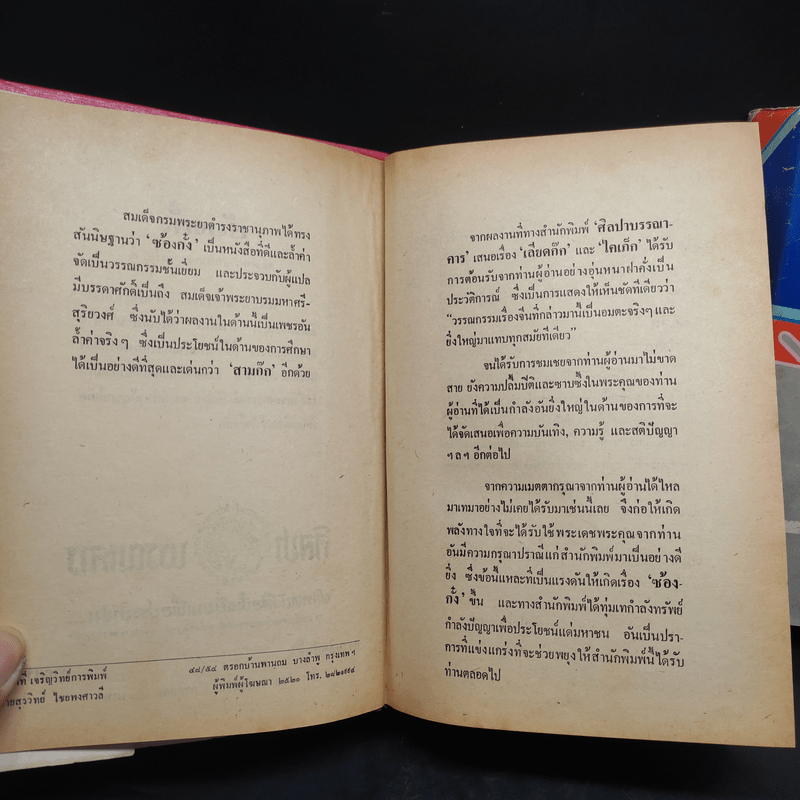 สมเด็จกรมพระยาดำรงราชานุภาพได้ทรง
สันนิษฐานว่า ‘ซ้องกั๋ง’ เป็นหนังสือที่ดีและล้ำค่า
จัดเป็นวรรณกรรมชั้นเยี่ยม และประจวบกับผู้แปล
มีบรรดาศักดิ์เป็นถึง สมเด็จเจ้าพระยาบรมมหาศรี-
สุริยวงศ์ ซึ่งนับได้ว่าผลงานในด้านนี้เป็นเพชรอัน
ล้ำค่าจริงๆ ซึ่งเป็นประโยชน์ในด้านของการศึกษา
ได้เป็นอย่างดีที่สุดและเด่นกว่า ‘สามก๊ก’ อีกด้วย
ที่ เจริญวิทย์การพิมพ์ ๔๘/๕๔ ตรอกบ้านพานถม บางลำพู กรุงเทพฯ
ายสุรวิทย์ ไชยพงศาวลี ผู้พิมพ์ผู้โฆษณา ๒๕๒๐ โทร.
จากผลงานที่ทางสำนักพิมพ์ ‘ศิลปาบรรณา-
คาร’ เสนอเรื่อง ‘เลียดก๊ก’ และ ‘ไคเภ็ก’ ได้รับ
การต้อนรับจากท่านผู้อ่านอย่างอุ่นหนาฝาคั่งเป็น
ประวัติการณ์ ซึ่งเป็นการแสดงให้เห็นชัดทีเดียวว่า
“วรรณกรรมเรื่องจีนที่กล่าวมานี้เป็นอมตะจริงๆ และ
ยิ่งใหญ่มาแทบทุกสมัยทีเดียว”
จนได้รับการชมเชยจากท่านผู้อ่านมาไม่ขาด
สาย ยังความปลื้มปีติและซาบซึ้งในพระคุณของท่าน
ผู้อ่านที่ได้เป็นกำลังอันยิ่งใหญ่ในด้านของการที่จะ
ได้จัดเสนอเพื่อความบันเทิง, ความรู้ และสติปัญญา
ฯลฯ อีกต่อไป
จากความเมตตากรุณาจากท่านผู้อ่านได้ไหล
มาเทมาอย่างไม่เคยได้รับมาเช่นนี้เลย จึงก่อให้เกิด
พลังทางใจที่จะได้รับใช้พระเดชพระคุณจากท่าน
อันมีความกรุณาปราณีแก่สำนักพิมพ์มาเป็นอย่างดี
ยิ่ง ซึ่งข้อนี้แหละที่เป็นแรงดันให้เกิดเรื่อง ‘ซ้อง-
กั๋ง’ ขึ้น และทางสำนักพิมพ์ได้ทุ่มเทกำลังทรัพย์
กำลังปัญญาเพื่อประโยชน์แด่มหาชน อันเป็นปรา-
การที่แข่งแกร่งที่จะช่วยพยุงให้สำนักพิมพ์นี้ได้รับ
ท่านตลอดไป